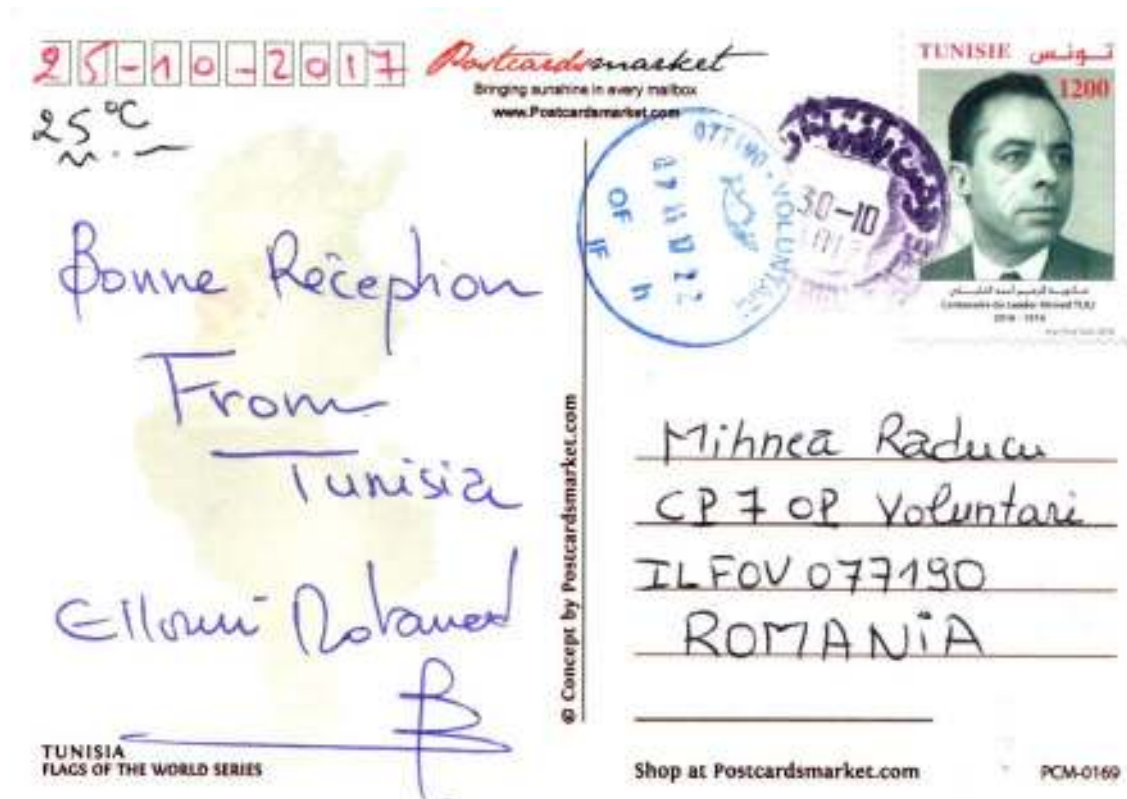 25-10-2017
25°C
Postcardsmarket
Bringing sunshine in every mailbox
www.Postcardsmarket.com
TUNISIE تونس
1200
Centenaire du Leader Ahmed TLILI
2016 - 1916
077190 - VOLUNTARI
OF
IF
h
30-10
Bonne Réception
From
Tunisia
Elloumi Mohamed
© Concept by Postcardsmarket.com
Mihnea Raducu
CP 7 OP Voluntari
ILFOV 077190
ROMANiA
TUNISIA
FLAGS OF THE WORLD SERIES
Shop at Postcardsmarket.com
PCM-0169